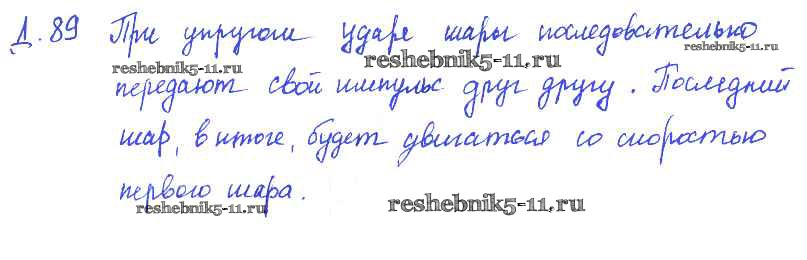 Д.89 При упругом ударе шары последовательно
reshebnik5-11.ru reshebnik5-11.ru reshebnik5-11.ru
передают свой импульс друг другу. Последний
шар, в итоге, будет двигаться со скоростью
первого шара.
reshebnik5-11.ru reshebnik5-11.ru